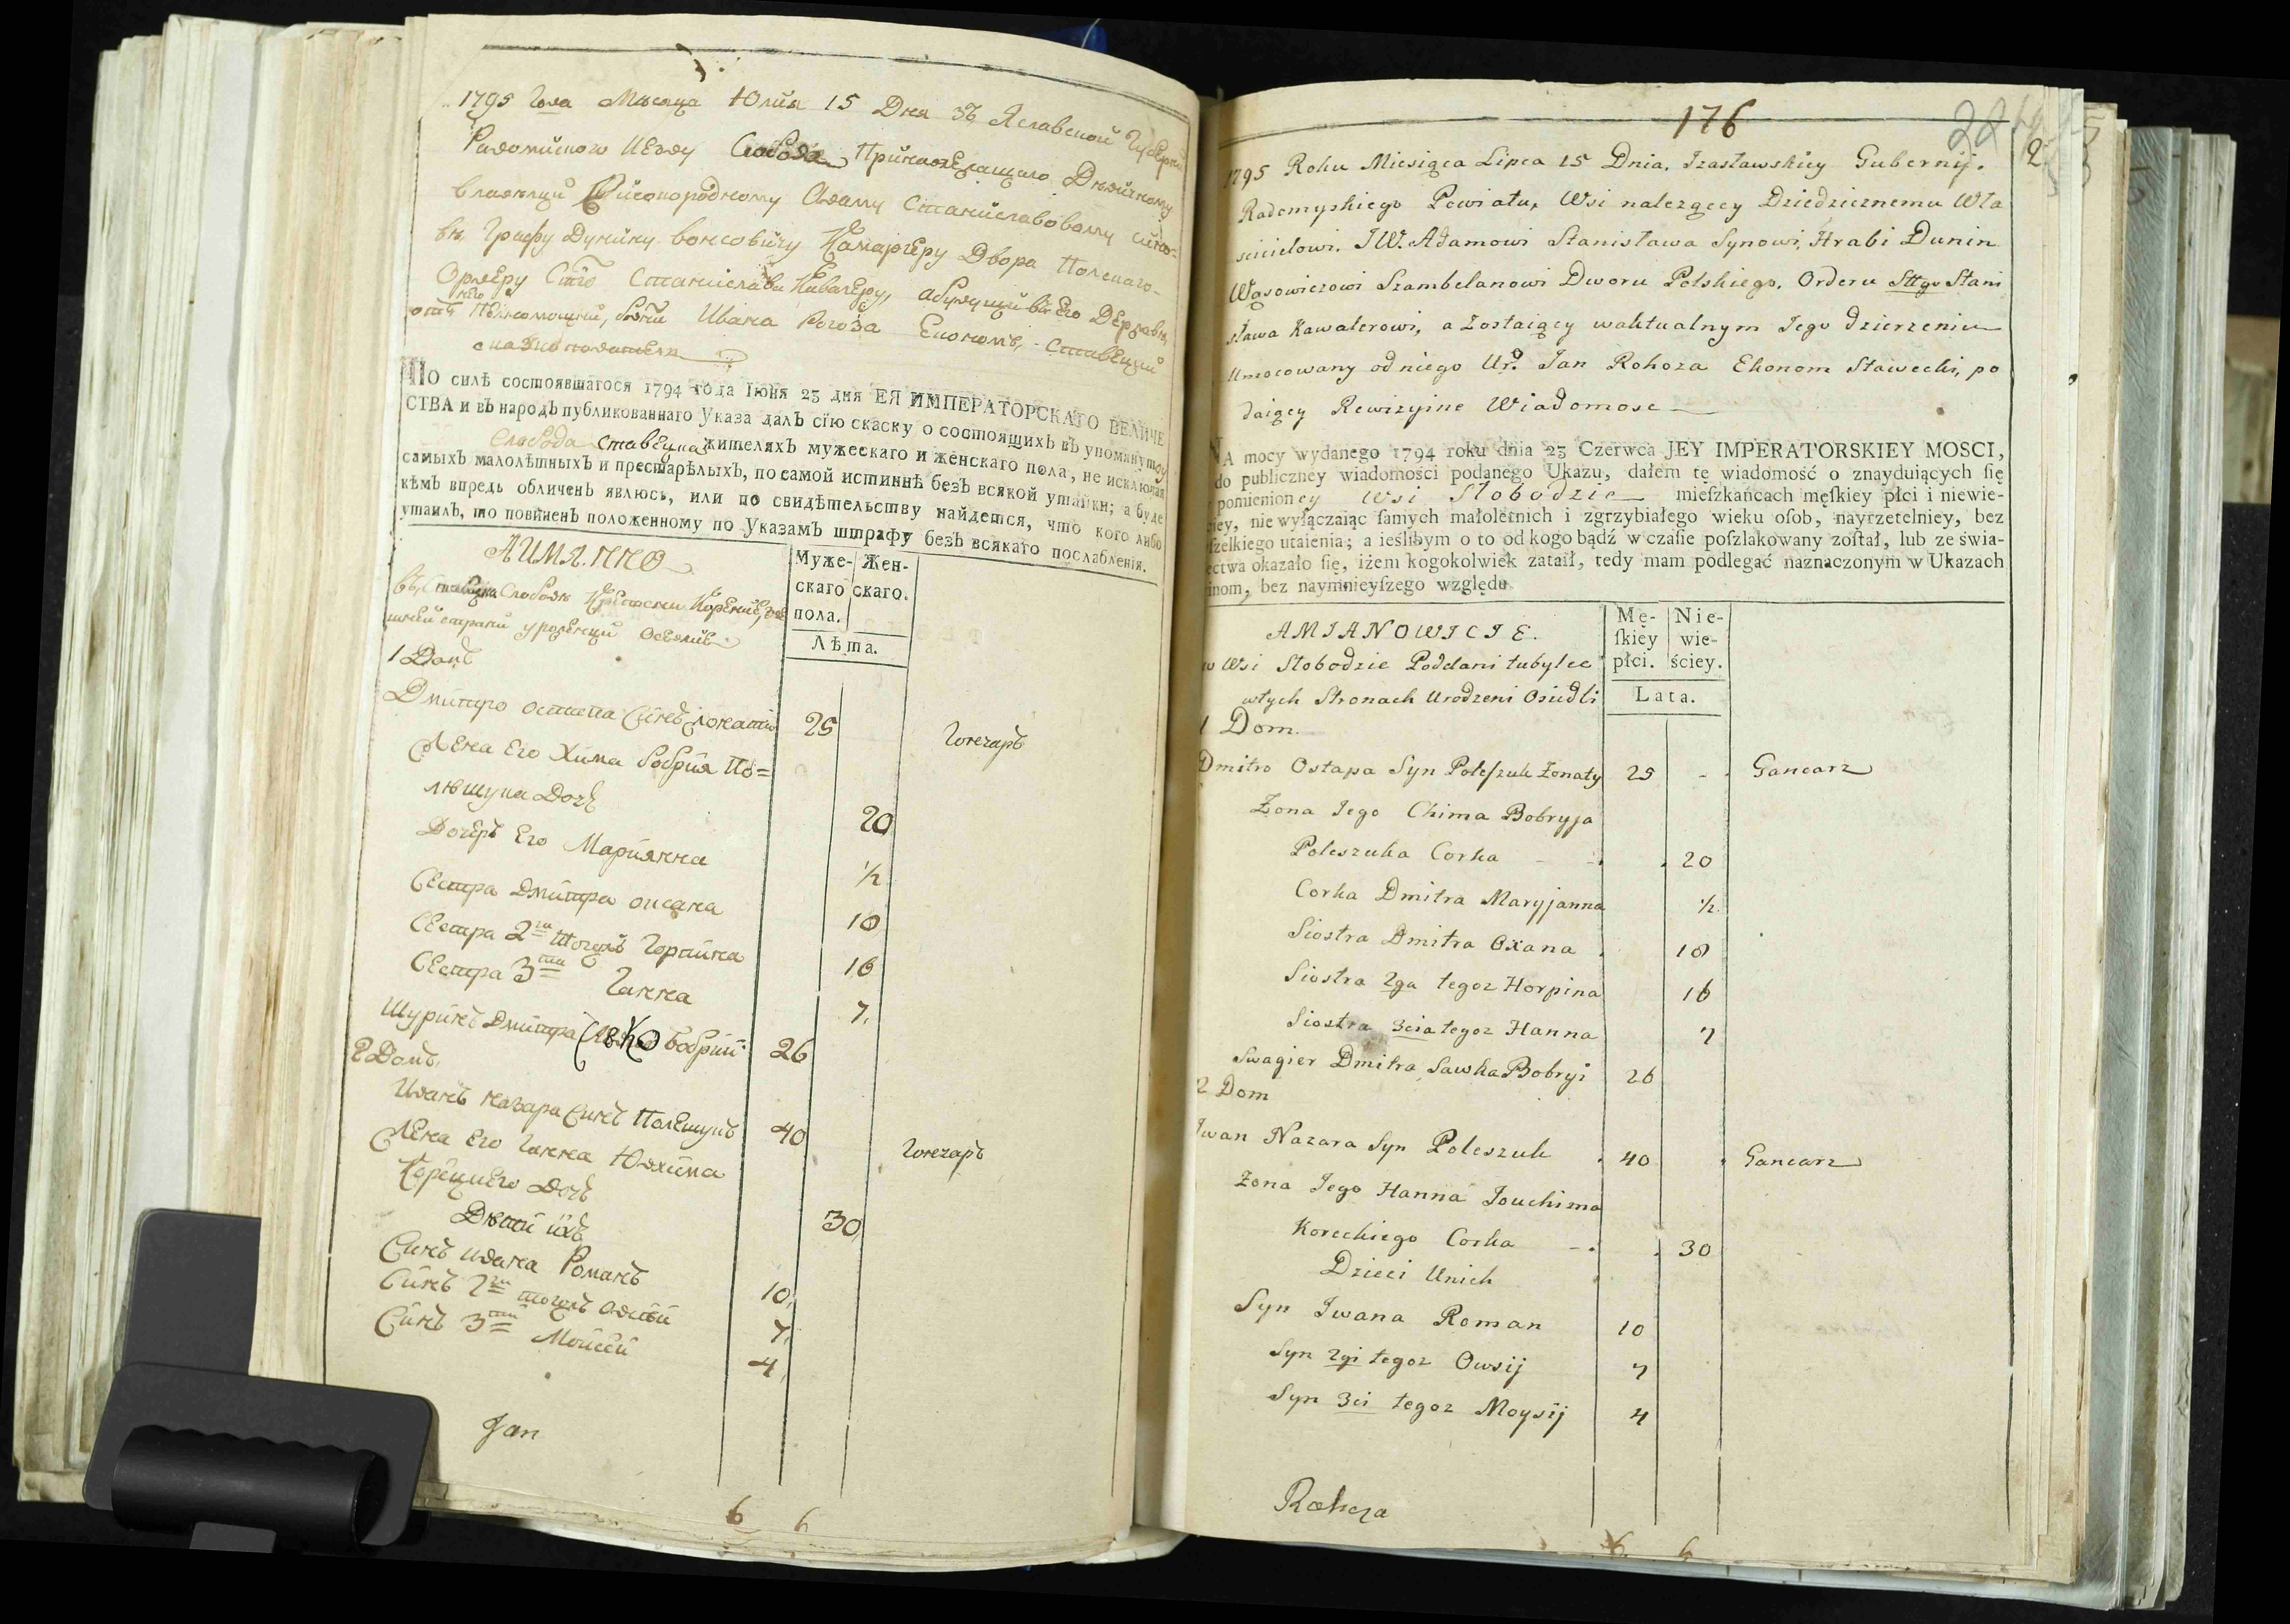 1795 Года Мѣсяца Юлія 15 Дня Зъ Яславской Губерніи
Радомиского Уезду Слобода Принадлежащаго Дѣдичному
владѣлци Высокородному Адаму Станиславовому сино-
вѣ, Графу Дунину вонсовичу Камаргеру Двора Полскаго
Ордеру Стго Станислава Кавалеру, а будущий въ Его Державѣ
отъ него Ивана Рогоза Економъ, Ставецкій
ПО силѣ состоявшагося 1794 года Іюня 23 дня ЕЯ ИМПЕРАТОРСКАГО ВЕЛИЧЕ
СТВА и въ народъ публикованнаго Указа далъ сію скаску о состоящихъ въ упомянутой
Слобода Ставецка жителяхъ мужескаго и женскаго пола, не исключая
самыхъ малолѣтныхъ и престарѣлыхъ, по самой истиннѣ безъ всякой утайки; а буде
кѣмъ впредь обличенъ явлюсь, или по свидѣтельству найдется, что кого либо
утаилъ, то повиненъ положенному по Указамъ штрафу безъ всякаго послабленія.
АИМЯ.ННО
Муже- Жен-
скаго скаго.
пола.
Лѣта.
Слободѣ
уроженци Оселие
1 Домъ
Дмитро остапа Синъ 25 Гончаръ
Жена Его Хима бобрія По=
лешука Дочь 20
Дочеръ Его Маріянна ½
Сестра Дмитра оксана 10
Сестра 2га тогожъ Горпина 16
Сестра 3тя Ганна 7
Шуринъ Дмитра Савко бобрий 26
2 Домъ
Иванъ назара Синъ Полешукъ 40 Гончаръ
Жена Его Ганна Юхима
Корецкего Дочь 30
Дѣти ихъ
Синъ ивана Романъ 10
Синъ 2гй тогожъ Овсій 7
Синъ 3тй Мойсей 4
Jan
6 6
176
22
2
1795 Roku Miesiąca Lipca 15 Dnia. Izasławskiey Gubernij.
Radomyskiego Powiatu, Wsi należącey Dziedzicznemu Wła
scicielowi. JW. Adamowi Stanisława Synowi, Hrabi Dunin
Wąsowiczowi Szambelanowi Dworu Polskiego, Orderu Sttgo Stani
sława Kawalerowi, a zostaiącey waktualnym Jego dzierzeniu
Umocowany od niego Ur. Jan Rohoza Ekonom Stawecki, po
daiący Rewizyine Wiadomosc
NA mocy wydanego 1794 roku dnia 23 Czerwca JEY IMPERATORSKIEY MOSCI,
do publiczney wiadomości podanego Ukazu, dałem tę wiadomość o znayduiących ſię
pomienioney Wsi Słobodzie mieſzkańcach męſkiey płci i niewie-
ściey, nie wyłączaiąc ſamych małoletnich i zgrzybiałego wieku oſob, nayrzetelniey, bez
wſzelkiego utaienia; a ieślibym o to od kogo bądź w czaſie poſzlakowany zoſtał, lub ze świa-
dectwa okazało ſię, iżem kogokolwiek zataił, tedy mam podlegać naznaczonym w Ukazach
winom, bez naymnieyſzego względu.
AMIANOWICIE.
Mę- Nie-
ſkiey wie-
płci. ściey.
Lata.
w Wsi Słobodzie Poddani tubylce
wtych Stronach Urodzeni Osiedli
1 Dom.
Dmitro Ostapa Syn Poleſzuk Żonaty 25 Gancarz
Żona Jego Chima Bobryja
Poleszuka Corka 20
Corka Dmitra Maryjanna ½
Siostra Dmitra Oxana 10
Siostra 2ga tegoz Horpina 16
Siostra 3cia tegoz Hanna 7
Swagier Dmitra Sawka Bobryi 26
2 Dom
Iwan Nazara Syn Poleszuk 40 Gancarz
Zona Jego Hanna Jouchima
Koreckiego Corka 30
Dzieci Unich
Syn Iwana Roman 10
Syn 2gi tegoz Owsij 7
Syn 3ci tegoz Moysij 4
Rohoza
6 6